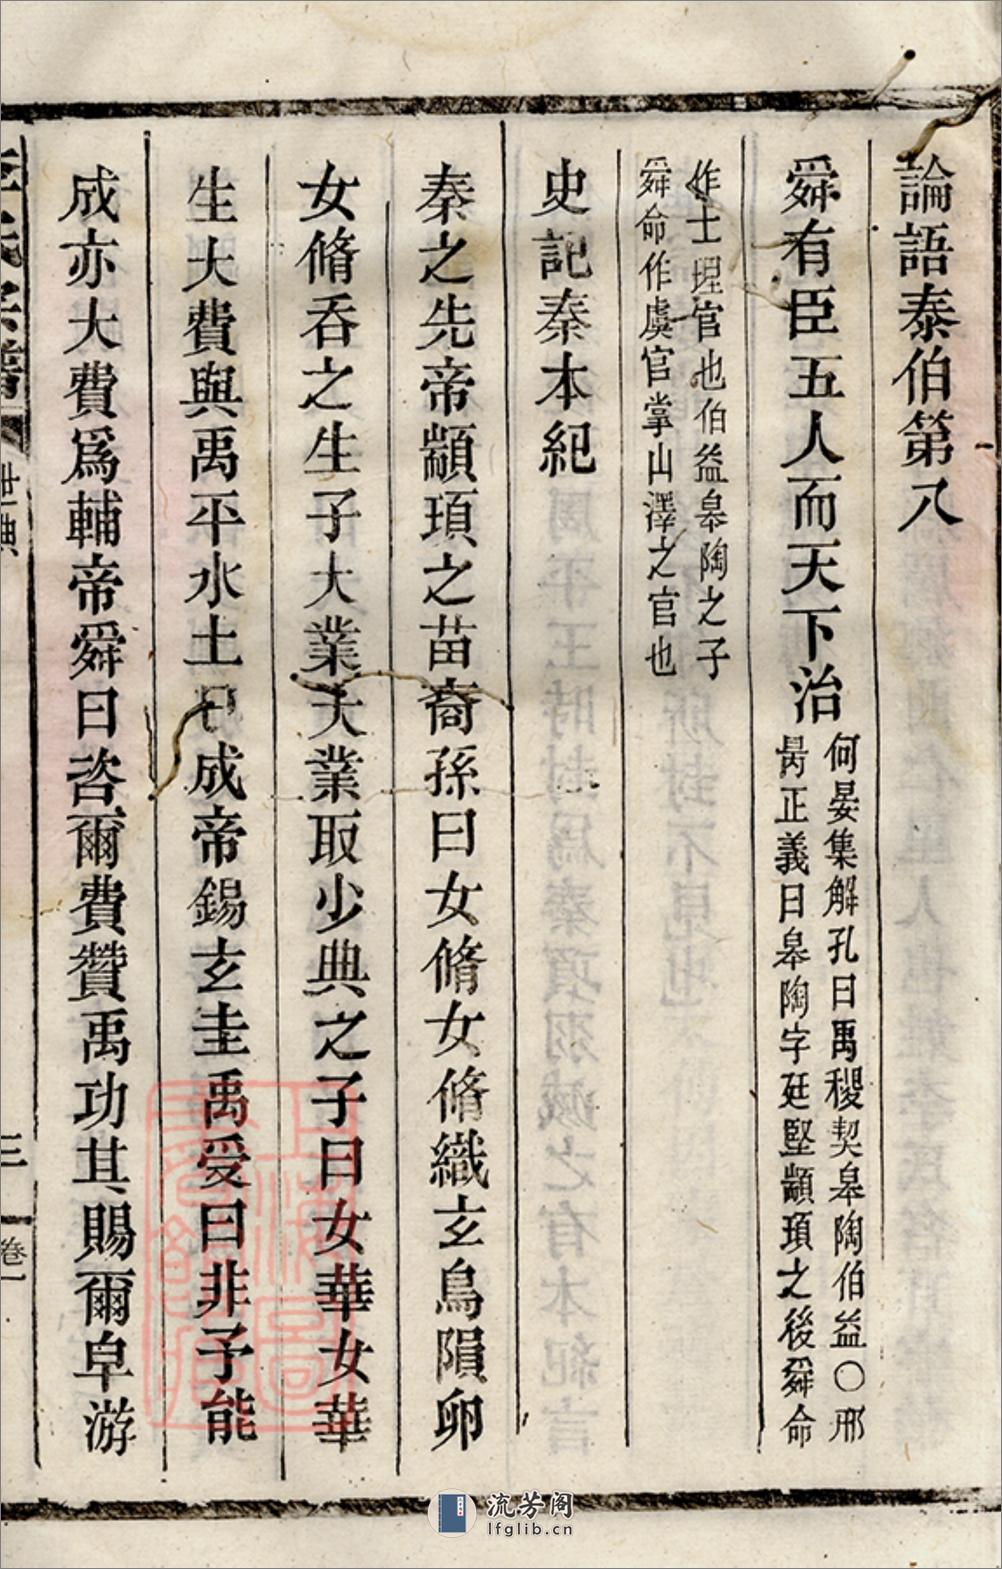 論語泰伯第八
舜有臣五人而天下治
何晏集解孔曰禹稷契皋陶伯益○邢
昺正義曰皋陶字廷堅顓頊之後舜命
作士理官也伯益皋陶之子
舜命作虞官掌山澤之官也
史記秦本紀
秦之先帝顓頊之苗裔孫曰女脩女脩織玄鳥隕卵
女脩吞之生子大業大業取少典之子曰女華女華
生大費與禹平水土已成帝錫玄圭禹受曰非予能
成亦大費爲輔帝舜曰咨爾費贊禹功其賜爾皁游
世典
三
卷一
流芳阁
lfglib.cn